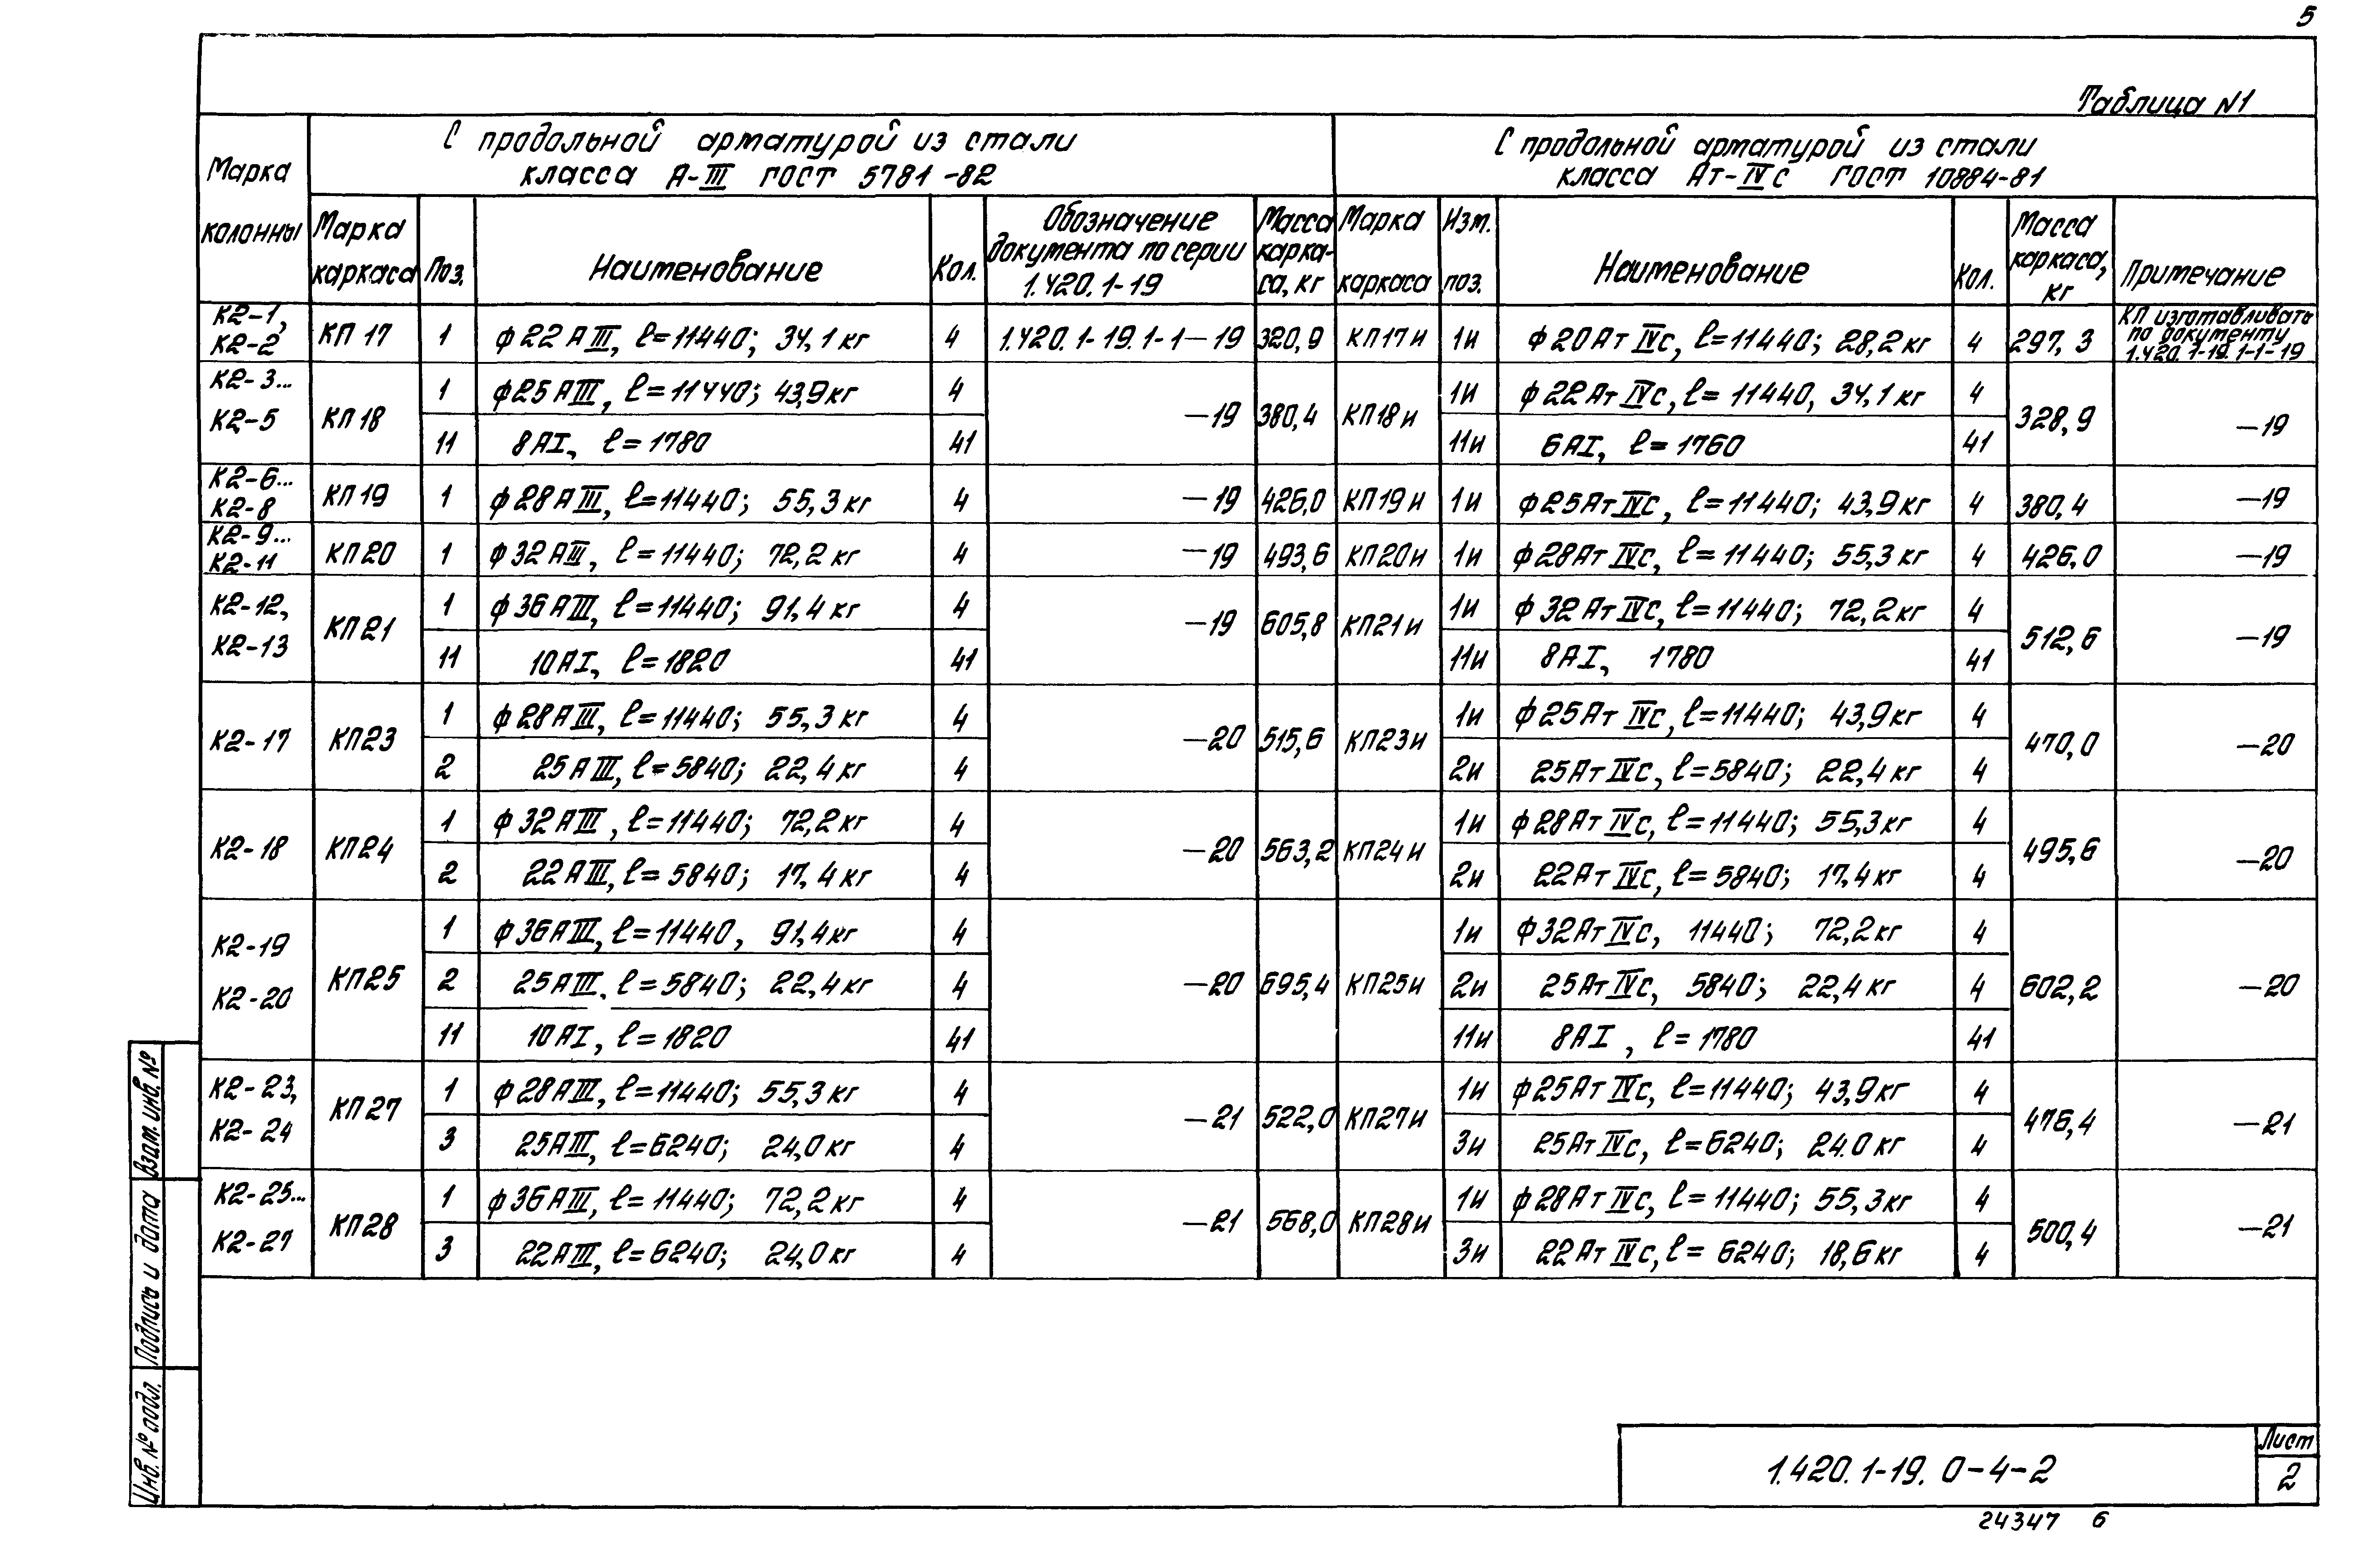 5
Таблица N1
Марка колонны
С продольной арматурой из стали
класса А-III ГОСТ 5781-82
С продольной арматурой из стали
класса Ат-IVс ГОСТ 10884-81
Марка каркаса
Поз.
Наименование
Кол.
Обозначение документа по серии 1.420.1-19
Масса карка-са, кг
Марка каркаса
Изм. поз.
Наименование
Кол.
Масса каркаса, кг
Примечание
К2-1, К2-2 КП 17 1 ф22 АIII, ℓ=11440; 34,1 кг 4 1.420.1-19.1-1—19 320,9 КП17и 1и ф20Ат IVс, ℓ=11440; 28,2кг 4 297,3 КП изготавливать по документу 1.420.1-19.1-1-19
К2-3... К2-5 КП 18 1 ф25 АIII, ℓ=11440; 43,9кг 4 —19 380,4 КП18и 1и ф22Ат IVс, ℓ=11440, 34,1кг 4 328,9 —19
11 8АI, ℓ=1780 41 11и 6АI, ℓ=1760 41
К2-6... К2-8 КП19 1 ф28АIII, ℓ=11440; 55,3кг 4 —19 426,0 КП19и 1и ф25Ат IVс, ℓ=11440; 43,9кг 4 380,4 —19
К2-9... К2-11 КП20 1 ф32АIII, ℓ=11440; 72,2кг 4 —19 493,6 КП20и 1и ф28Ат IVс, ℓ=11440; 55,3кг 4 426,0 —19
К2-12, К2-13 КП21 1 ф36АIII, ℓ=11440; 91,4кг 4 —19 605,8 КП21и 1и ф32Ат IVс, ℓ=11440; 72,2кг 4 512,6 —19
11 10АI, ℓ=1820 41 11и 8АI, 1780 41
К2-17 КП23 1 ф28АIII, ℓ=11440; 55,3кг 4 —20 515,6 КП23и 1и ф25Ат IVс, ℓ=11440; 43,9кг 4 470,0 —20
2 25АIII, ℓ=5840; 22,4кг 4 2и 25Ат IVс, ℓ=5840; 22,4кг 4
К2-18 КП24 1 ф32АIII, ℓ=11440; 72,2кг 4 —20 563,2 КП24и 1и ф28Ат IVс, ℓ=11440; 55,3кг 4 495,6 —20
2 22АIII, ℓ=5840; 17,4кг 4 2и 22Ат IVс, ℓ=5840; 17,4кг 4
К2-19 К2-20 КП25 1 ф36АIII, ℓ=11440, 91,4кг 4 —20 695,4 КП25и 1и ф32Ат IVс, 11440; 72,2кг 4 602,2 —20
2 25АIII, ℓ=5840; 22,4кг 4 2и 25Ат IVс, 5840; 22,4кг 4
11 10АI, ℓ=1820 41 11и 8АI, ℓ=1780 41
К2-23, К2-24 КП27 1 ф28АIII, ℓ=11440; 55,3кг 4 —21 522,0 КП27и 1и ф25Ат IVс, ℓ=11440; 43,9кг 4 476,4 —21
3 25АIII, ℓ=6240; 24,0кг 4 3и 25Ат IVс, ℓ=6240; 24.0кг 4
К2-25... К2-27 КП28 1 ф36АIII, ℓ=11440; 72,2кг 4 —21 568,0 КП28и 1и ф28Ат IVс, ℓ=11440; 55,3кг 4 500,4 —21
3 22АIII, ℓ=6240; 24,0кг 4 3и 22Ат IVс, ℓ=6240; 18,6кг 4
Взам. инв. №
Подпись и дата
Инв. № подл.
1.420.1-19. 0-4-2
Лист
2
24347 6